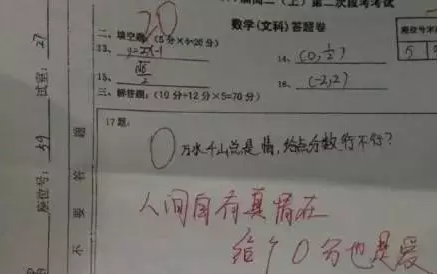 20
高二（上）第二次段考考试
数学(文科)答题卷
座位号末
二、填空题：(5分×4=20分)
13、y=2x-1
14、(0,1/2)
15、
16、(-2,2)
三、解答题：(10分+12分×5=70分)
17题：
0
万水千山总是情，给点分数行不行？
人间自有真情在
给个0分也是爱
试室：27
座位号：59
不要答题